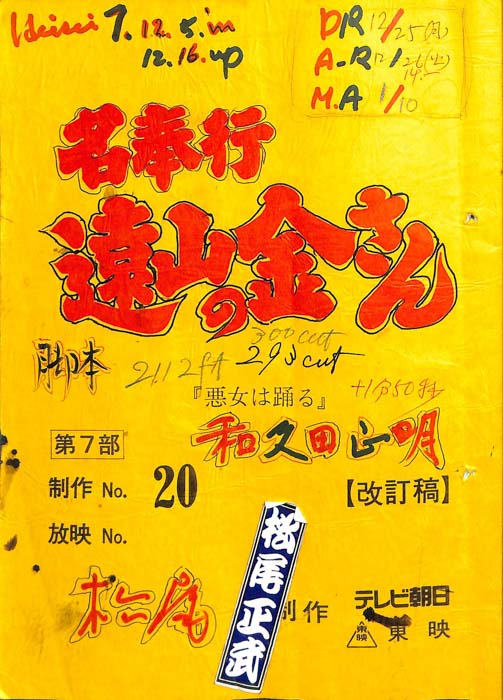 Heisei 7. 12. 5. in
12. 16. up
DR 12/25(月)
A-R 12/26(火)
14:-
M.A 1/10
名奉行
遠山の金さん
脚本
2112ft
300cut
293cut
『悪女は踊る』
+1分50秒
和久田正明
第7部
制作 No. 20
【改訂稿】
放映 No.
松尾
松尾正武
制作
テレビ朝日
東映
東映